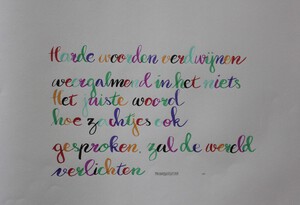 Harde woorden verdwijnen
weergalmend in het niets
Het juiste woord
hoe zachtjes ook
gesproken, zal de wereld
verlichten